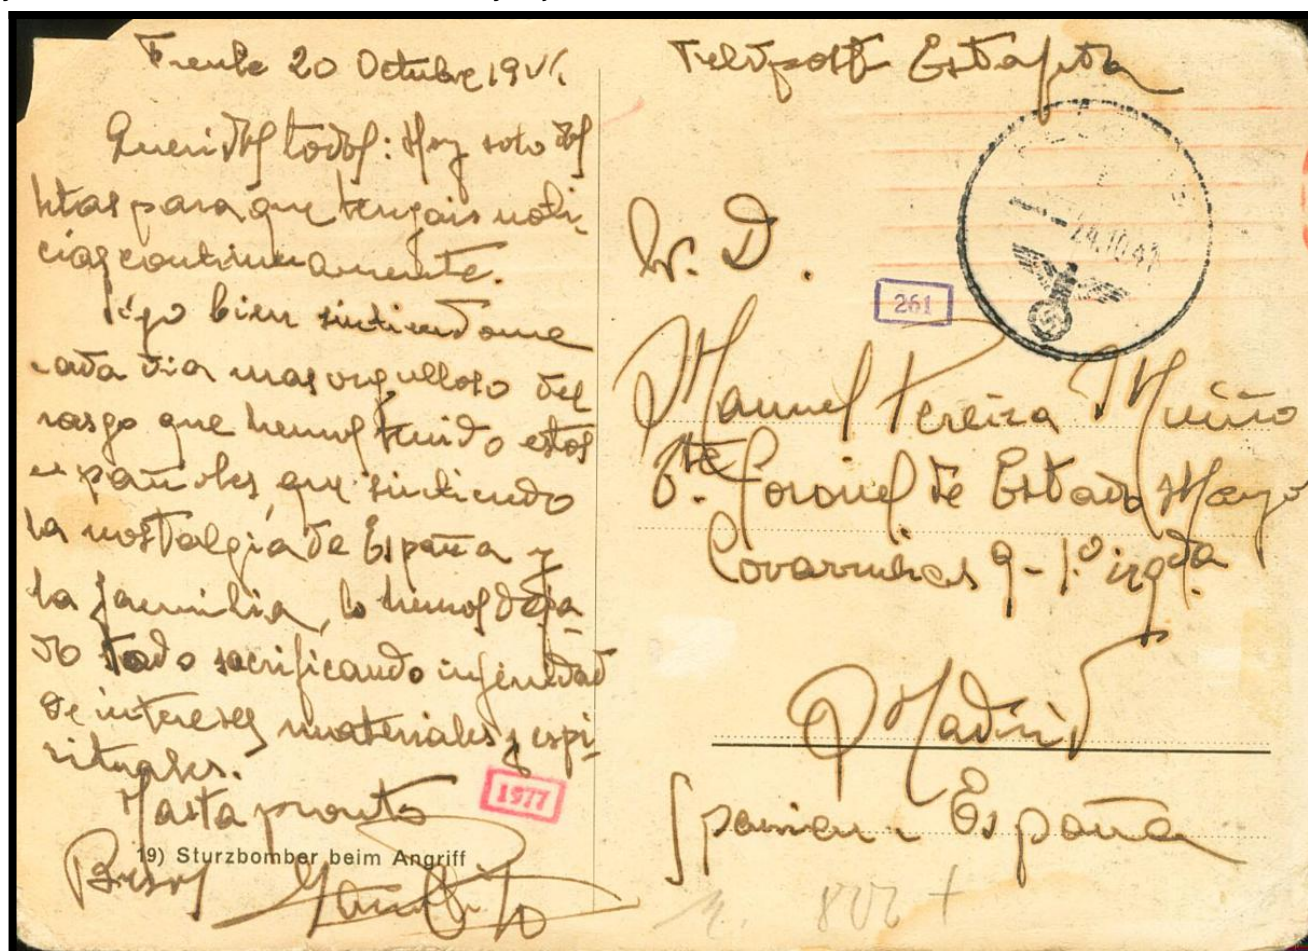 Frente 20 Octubre 1941.
Queridos todos: Hoy solo dos
letras para que tengais noti-
cias continuamente.
Sigo bien sintiendome
cada dia mas orgulloso del
rasgo que hemos tenido estos
españoles, que sintiendo
la nostalgia de España y
la familia, lo hemos deja-
do todo sacrificando infinidad
de intereses materiales y espi-
rituales.
Hasta pronto
Besos
1977
19) Sturzbomber beim Angriff
Feldpost Estafeta
24.10.41
Sr. D.
261
Manuel Pereira Muiño
Tte. Coronel de Estado Mayor
Covarrubias 9-1.º izqda.
Madrid
Spanien - España